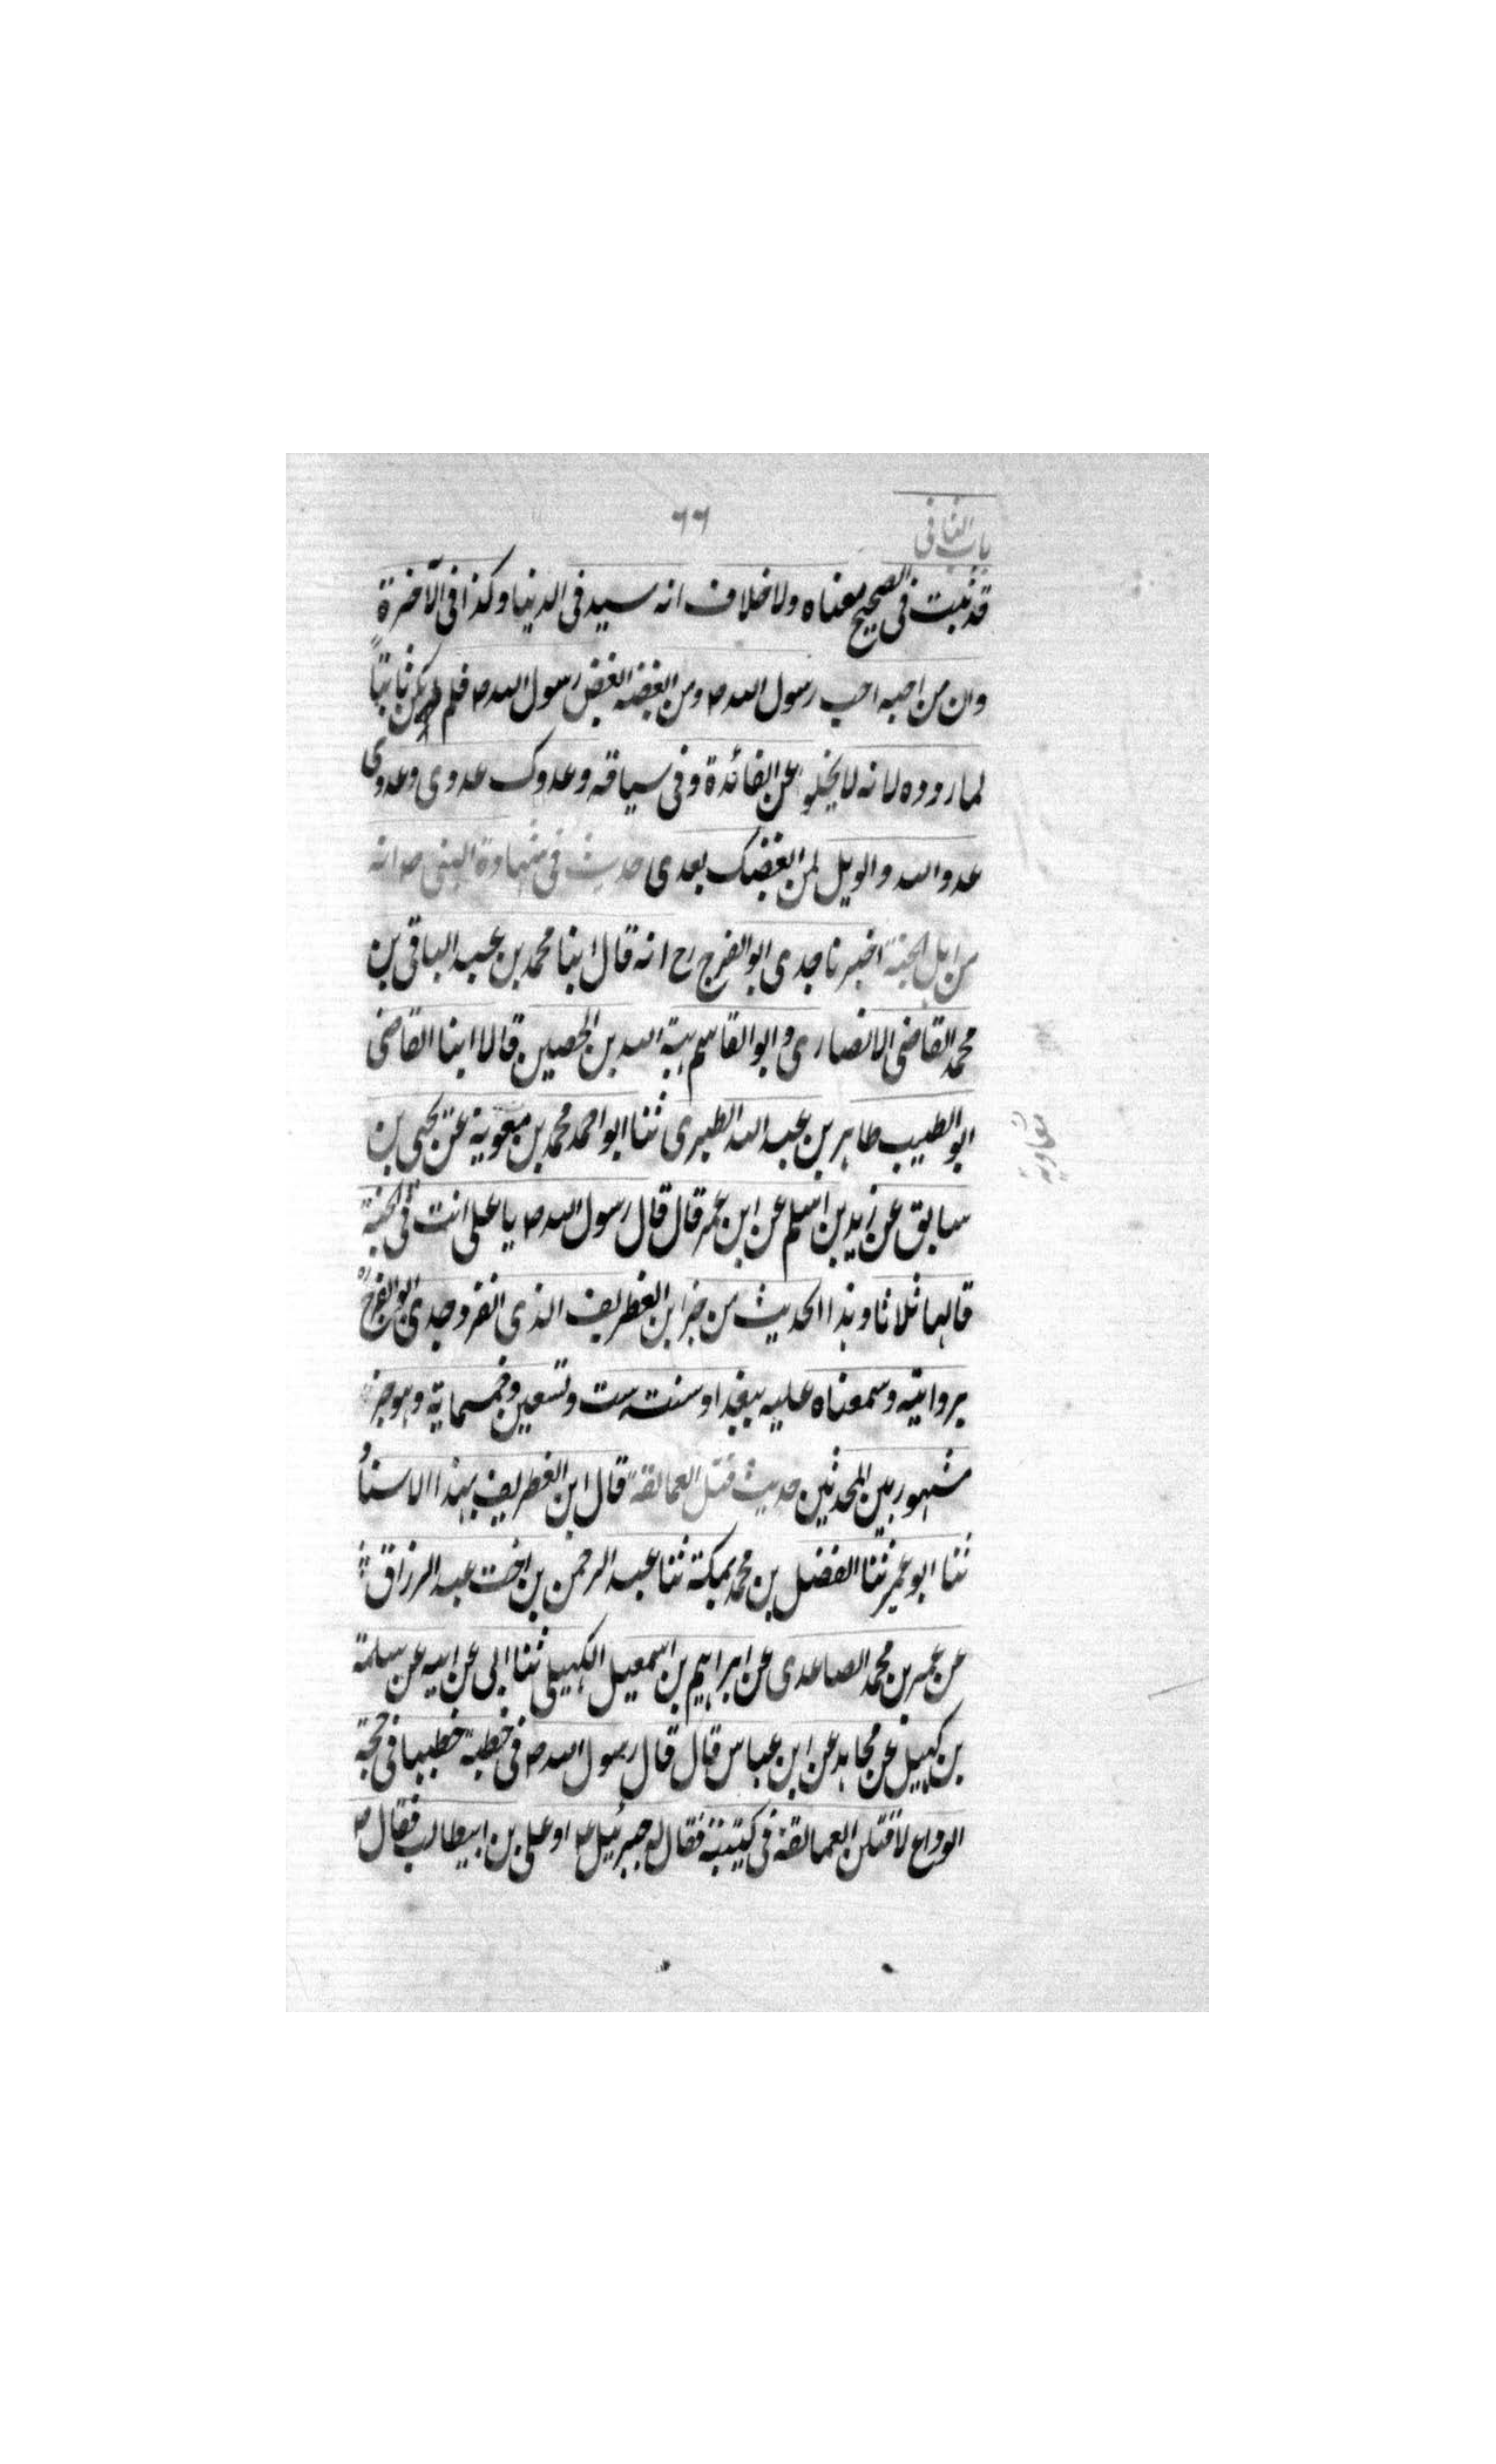 باب الثانی
٦٦
قد ثبت فی الصحیح معناه ولا خلاف انه سید فی الدنیا وکذا فی الآخرة
وان من احبه احب رسول الله ص ومن ابغضه ابغض رسول الله ص فلم یکن ثابتاً
لما رووه لانه لا یخلو عن الفائدة وفی سیاقه وعدوک عدوی وعدوی
عدو الله والویل لمن ابغضک بعدی حدیث فی شهادة النبی ص انه
من اهل الجنة اخبرنا جدی ابو الفرج رح انه قال ابنا محمد بن عبد الباقی بن
محمد القاضی الانصاری و ابو القاسم هبة الله بن الحصین قالا ابنا القاضی
ابو الطیب طاهر بن عبد الله الطبری ثنا ابو احمد محمد بن معویة عن یحیی بن
معاویة
سابق عن زید بن اسلم عن ابن عمر قال قال رسول الله ص یا علی انت فی الجنة
قالها ثلاثا وهذا الحدیث من جزء ابن الغطریف الذی انفرد جدی ابو الفرج ره
بروایته وسمعناه علیه ببغداد سنت ست وتسعین وخمسمایة وهو جزء
مشهور بین المحدثین حدیث قتل العمالقة قال ابن الغطریف بهذا الاسناد
ثنا ابو عمیر ثنا الفضل بن محمد بمکة ثنا عبد الرحمن بن اخت عبد الرزاق
عن عمر بن محمد الصاعدی عن ابراهیم بن اسمعیل الکهیلی ثنا ابی عن ابیه عن سلمة
بن کهیل عن مجاهد عن ابن عباس قال قال رسول الله ص فی خطبة خطبها فی حجة
الوداع لاقتلن العمالقة فی کتیبة فقال له جبرئیل ع او علی بن ابیطالب فقال ص